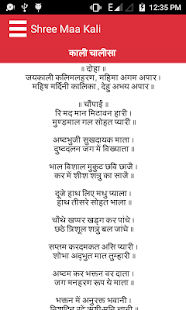 12:35 PM
Shree Maa Kali
काली चालीसा
॥ दोहा ॥
जयकाली कलिमलहरण, महिमा अगम अपार ।
महिष मर्दिनी कालिका , देहु अभय अपार ।
॥ चौपाई ॥
रि मद मान मिटावन हारी ।
मुण्डमाल गल सोहत प्यारी ।
अष्टभुजी सुखदायक माता ।
दुष्टदलन जग में विख्याता ।
भाल विशाल मुकुट छवि छाजै ।
कर में शीश शत्रु का साजै ।
दूजे हाथ लिए मधु प्याला ।
हाथ तीसरे सोहत भाला ।
चौथे खप्पर खड्ग कर पांचे ।
छठे त्रिशूल शत्रु बल जांचे ।
सप्तम करदमकत असि प्यारी ।
शोभा अद्भुत मात तुम्हारी ।
अष्टम कर भक्तन वर दाता ।
जग मनहरण रूप ये माता ।
भक्तन में अनुरक्त भवानी ।